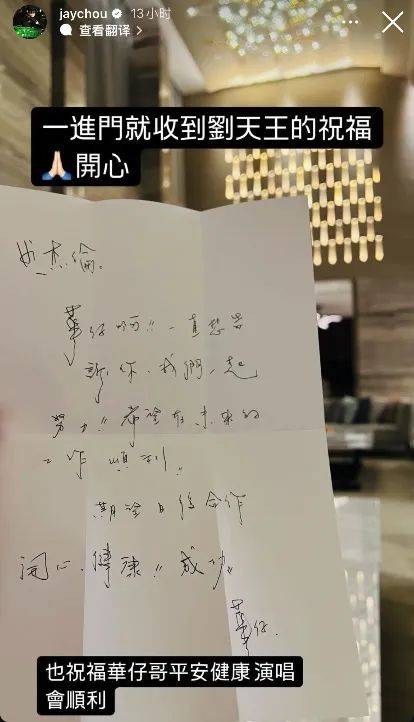 jaychou 13小时
查看翻译
一進門就收到劉天王的祝福
🙏🏻開心
杰倫。
華仔啊!! 一直想告
訴你、我們一起
努力!! 希望在未來的
工作順利!!
期望日後合作
開心、健康!! 成功!!
華仔.
也祝福華仔哥平安健康 演唱
會順利